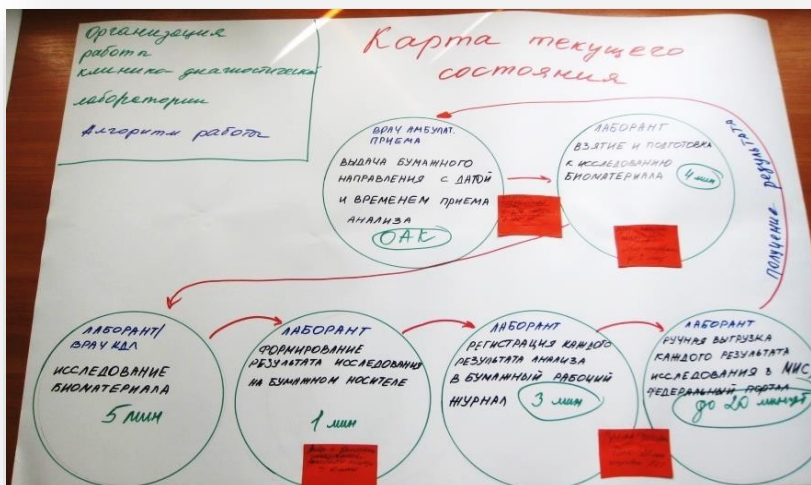 Организация
работа
клинико-диагностической
лаборатории
Алгоритм работы
Карта текущего
состояния
ВРАЧ АМБУЛАТ.
ПРИЕМА
ВЫДАЧА БУМАЖНОГО
НАПРАВЛЕНИЯ С ДАТОЙ
И ВРЕМЕНЕМ ПРИЕМА
АНАЛИЗА
ОАК
ЛАБОРАНТ
ВЗЯТИЕ И ПОДГОТОВКА
К ИССЛЕДОВАНИЮ
БИОМАТЕРИАЛА
4 мин
получение результата
ЛАБОРАНТ/
ВРАЧ КДЛ
ИССЛЕДОВАНИЕ
БИОМАТЕРИАЛА
5 мин
ЛАБОРАНТ
ФОРМИРОВАНИЕ
РЕЗУЛЬТАТА ИССЛЕДОВАНИЯ
НА БУМАЖНОМ НОСИТЕЛЕ
1 мин
ЛАБОРАНТ
РЕГИСТРАЦИЯ КАЖДОГО
РЕЗУЛЬТАТА АНАЛИЗА
В БУМАЖНЫЙ РАБОЧИЙ
ЖУРНАЛ
3 мин
ЛАБОРАНТ
РУЧНАЯ ВЫГРУЗКА
КАЖДОГО РЕЗУЛЬТАТА
ИССЛЕДОВАНИЯ В МИС,
ФЕДЕРАЛЬНЫЙ ПОРТАЛ
до 20 минут